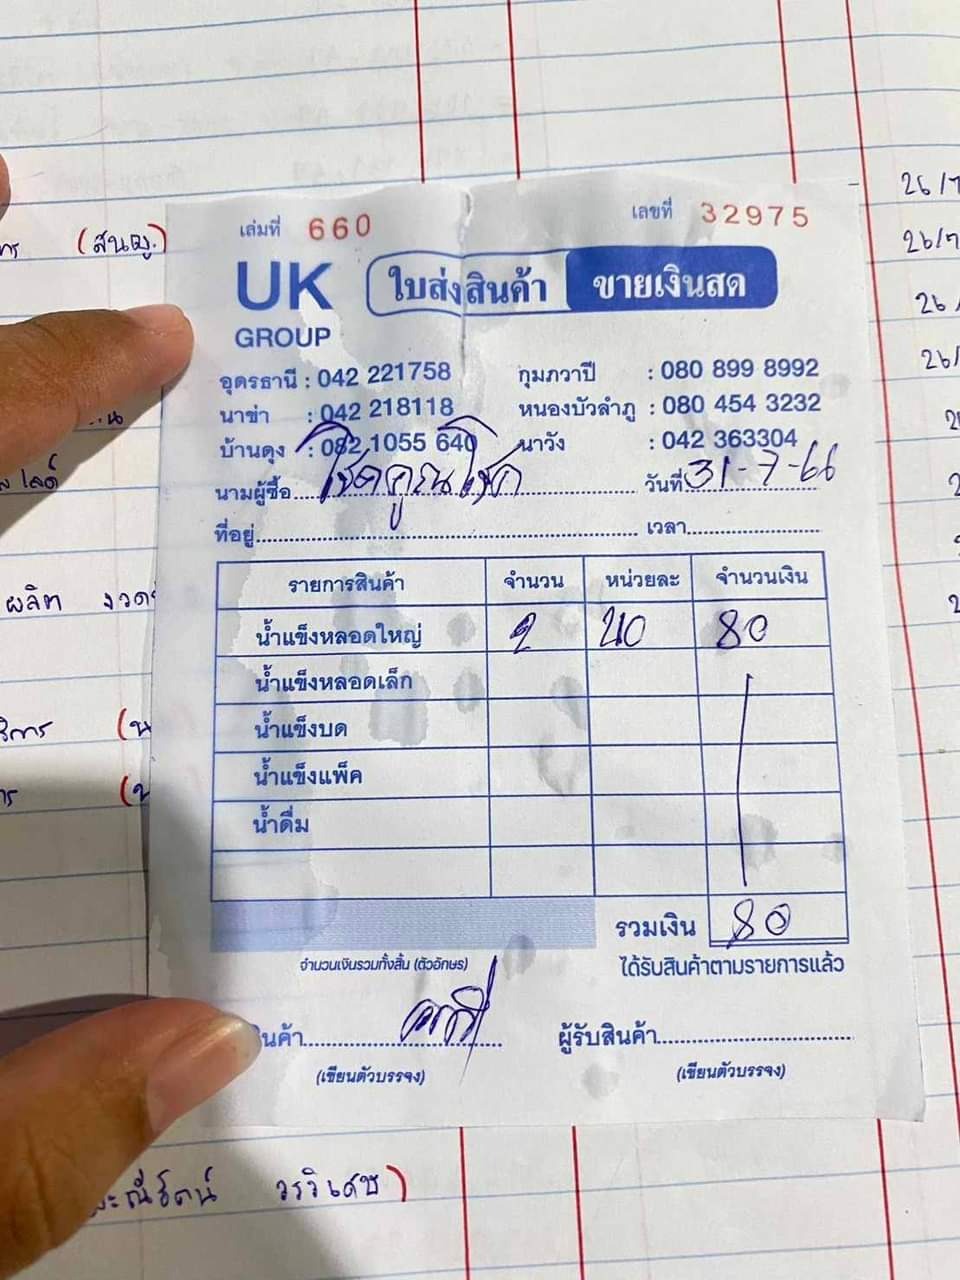 เล่มที่ 660 เลขที่ 32975
UK GROUP ใบส่งสินค้า ขายเงินสด
อุดรธานี : 042 221758 กุมภวาปี : 080 899 8992
นาข่า : 042 218118 หนองบัวลำภู : 080 454 3232
บ้านดุง : 082 1055 640 นาวัง : 042 363304
นามผู้ซื้อ โชคคูณโชค วันที่ 31-7-66
ที่อยู่ เวลา
รายการสินค้า จำนวน หน่วยละ จำนวนเงิน
น้ำแข็งหลอดใหญ่ 2 40 80
น้ำแข็งหลอดเล็ก
น้ำแข็งบด
น้ำแข็งแพ็ค
น้ำดื่ม
รวมเงิน 80
จำนวนเงินรวมทั้งสิ้น (ตัวอักษร) ได้รับสินค้าตามรายการแล้ว
สินค้า ผู้รับสินค้า
(เขียนตัวบรรจง) (เขียนตัวบรรจง)
(สัญญ.)
26/7
26/7
26/
26/
ผลิต งวด
วรวิเศษ)